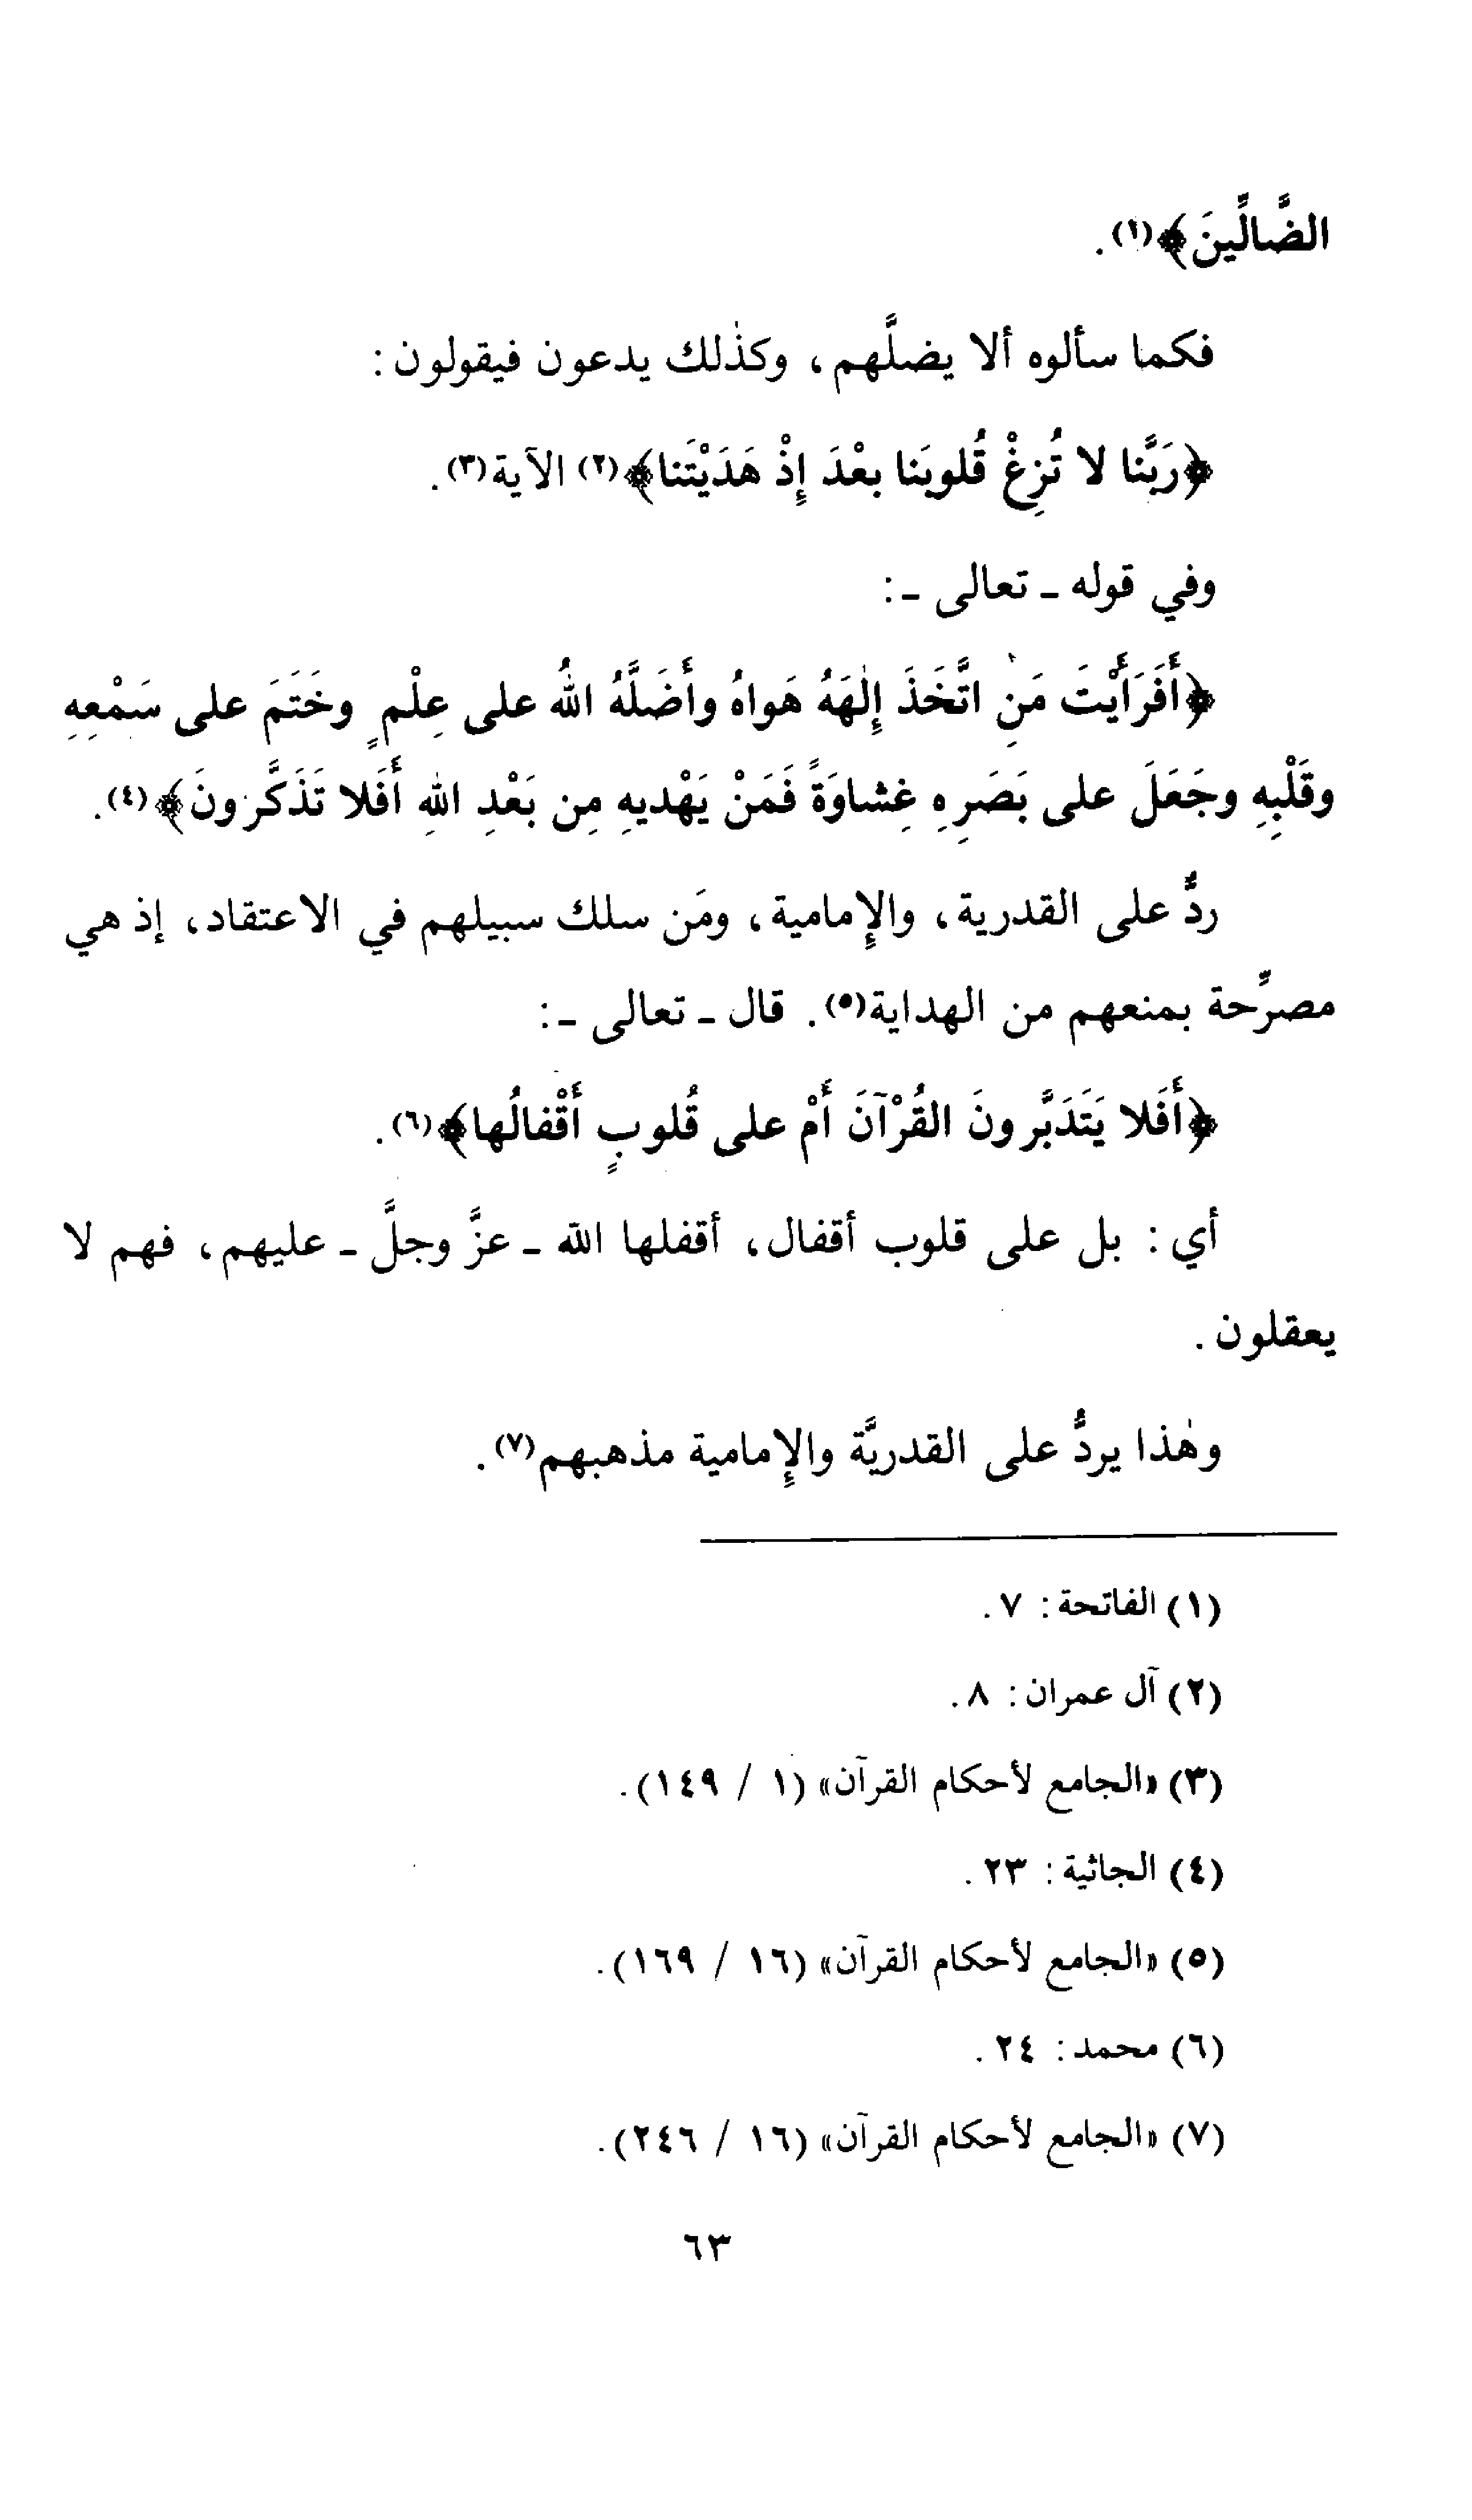 الضَّالِّينَ﴾(١).
فكما سألوه ألا يضلَّهم، وكذٰلك يدعون فيقولون:
﴿رَبَّنا لا تُزِغْ قُلوبَنا بعْدَ إِذْ هَدَيْتَنا﴾(٢) الآية(٣).
وفي قوله ـ تعالى ـ:
﴿أَفَرَأَيْتَ مَنِ اتَّخَذَ إِلٰهَهُ هَواهُ وأَضَلَّهُ اللهُ على عِلْمٍ وخَتَمَ على سَمْعِهِ
وقَلْبِهِ وجَعَلَ على بَصَرِهِ غِشاوَةً فَمَنْ يَهْديهِ مِن بَعْدِ اللهِ أَفَلا تَذَكَّرونَ﴾(٤).
ردٌّ على القدرية، والإمامية، ومَن سلك سبيلهم في الاعتقاد، إذ هي
مصرِّحة بمنعهم من الهداية(٥). قال ـ تعالى ـ:
﴿أَفَلا يَتَدَبَّرونَ القُرْآنَ أَمْ على قُلوبٍ أَقْفالُها﴾(٦).
أي: بل على قلوب أقفال، أقفلها الله ـ عزَّ وجلَّ ـ عليهم، فهم لا
يعقلون.
وهٰذا يردُّ على القدريَّة والإمامية مذهبهم(٧).
(١) الفاتحة: ٧.
(٢) آل عمران: ٨.
(٣) «الجامع لأحكام القرآن» (١ / ١٤٩).
(٤) الجاثية: ٢٣.
(٥) «الجامع لأحكام القرآن» (١٦ / ١٦٩).
(٦) محمد: ٢٤.
(٧) «الجامع لأحكام القرآن» (١٦ / ٢٤٦).
٦٣